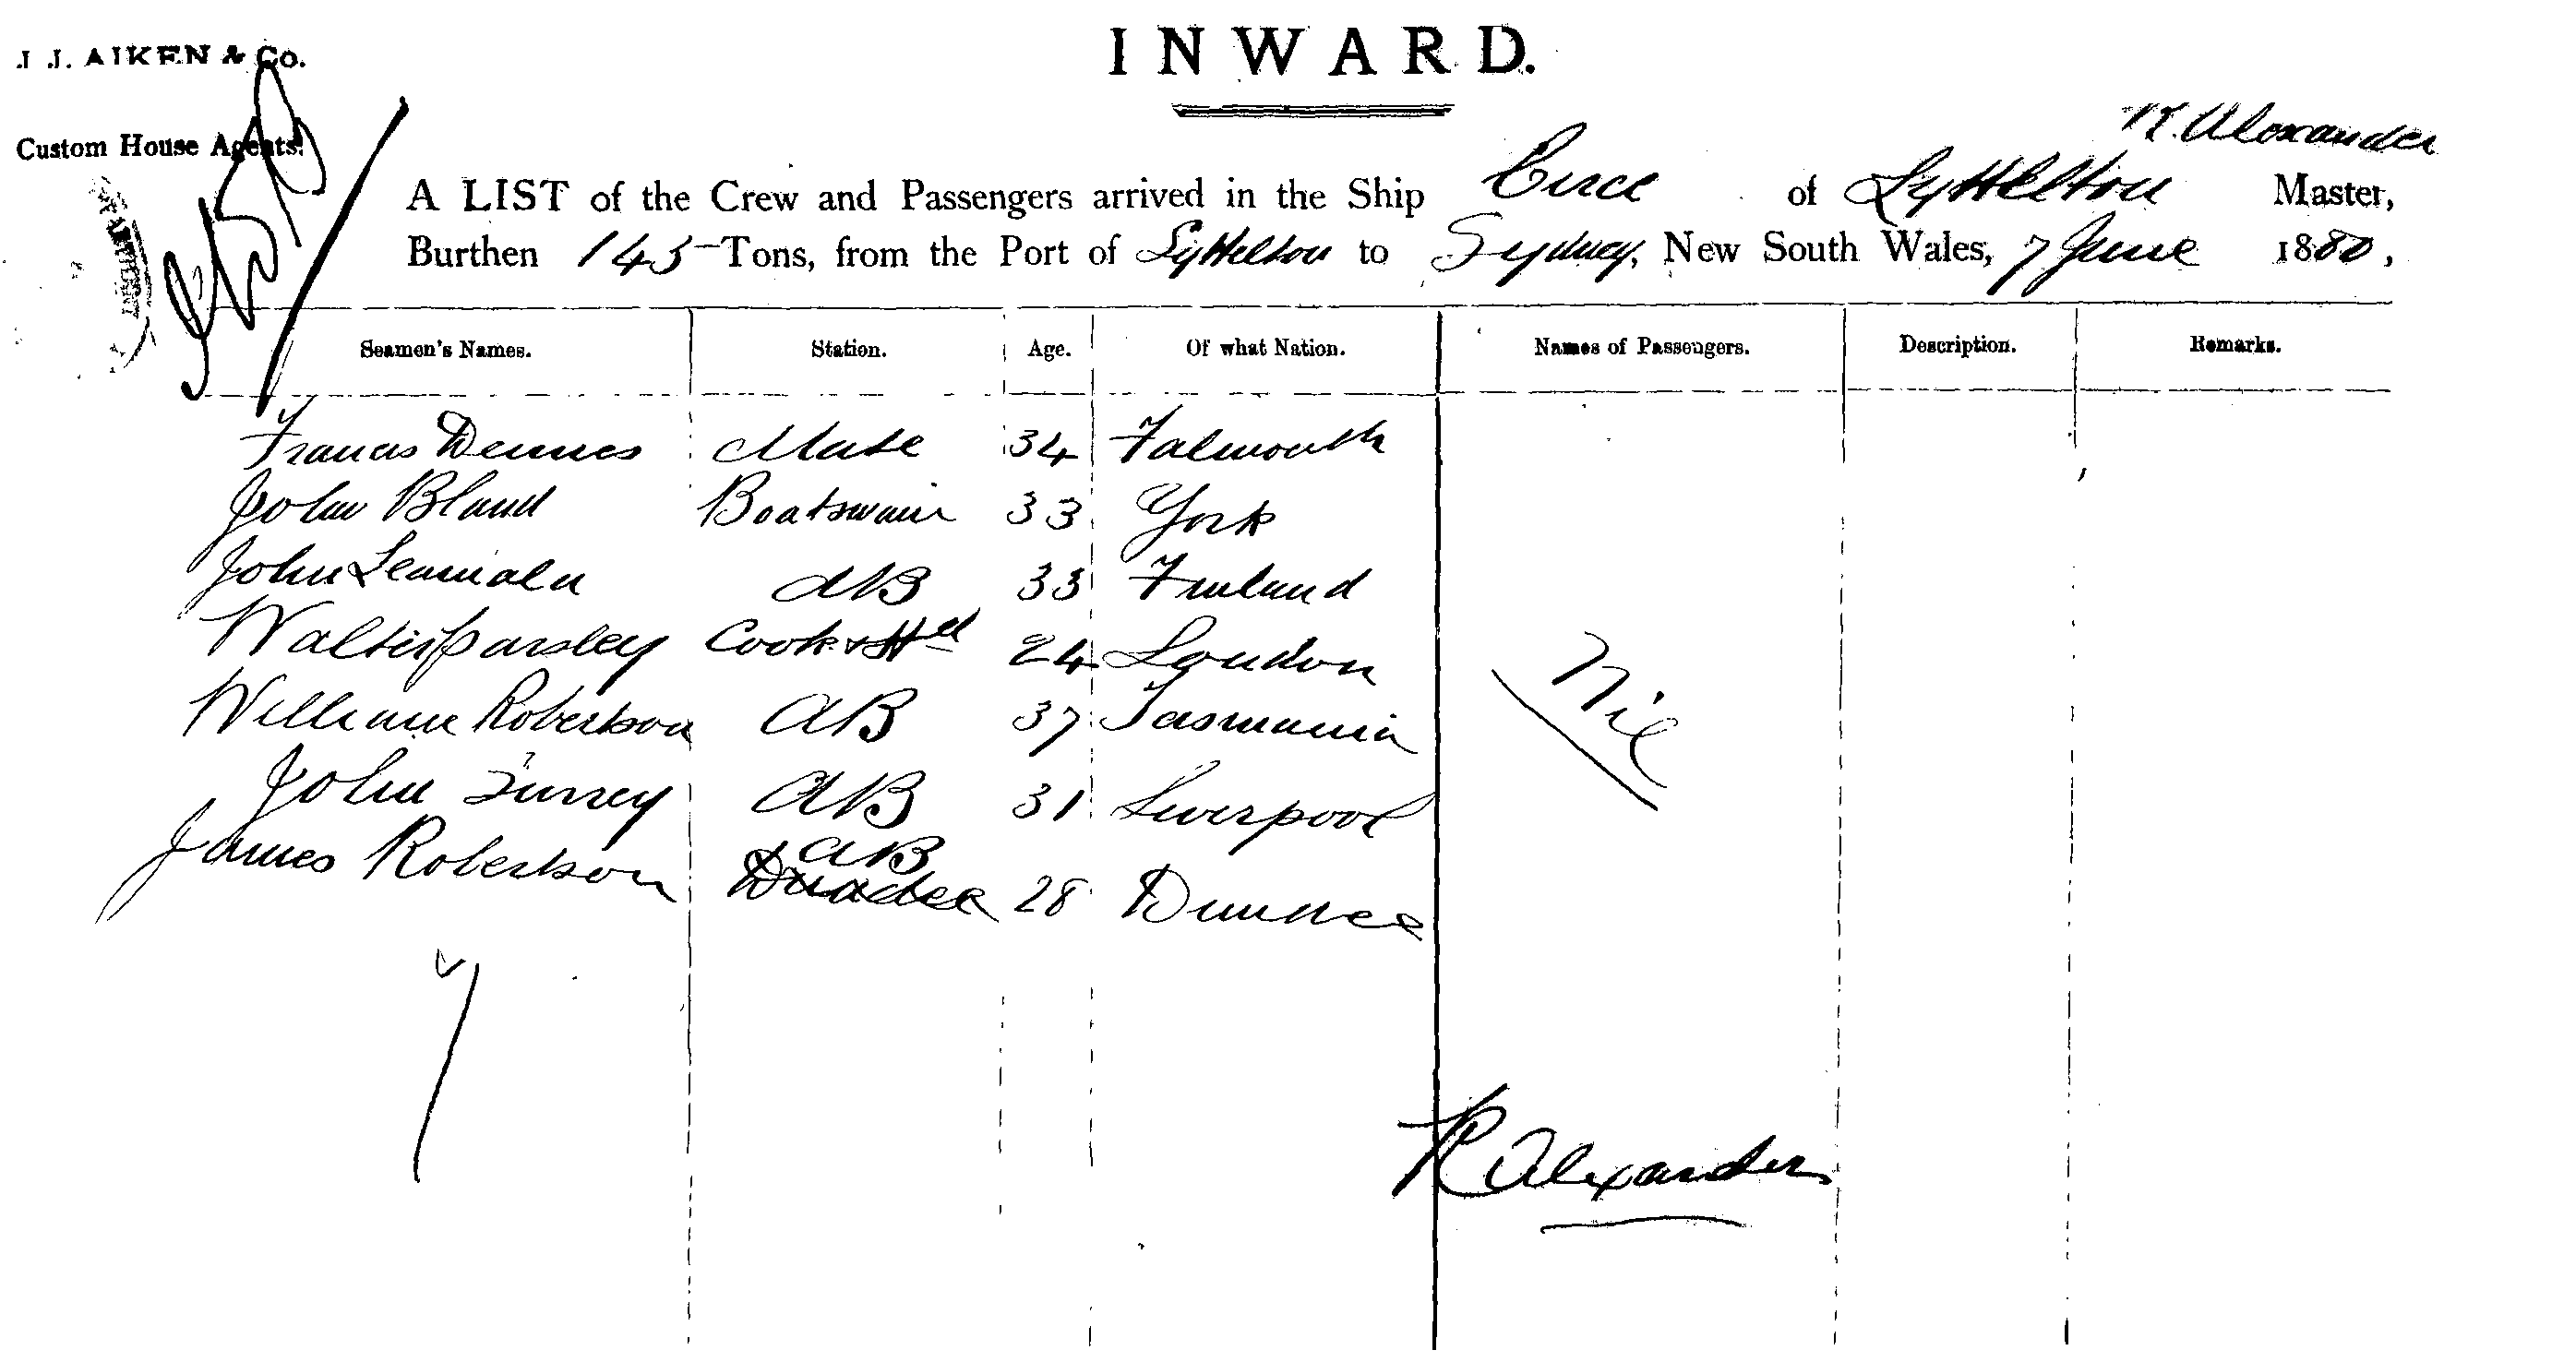 J. J. AIKEN & Co.
Custom House Agents.
INWARD.
R. Alexander
A LIST of the Crew and Passengers arrived in the Ship Circe of Lyttelton Master,
Burthen 145 Tons, from the Port of Lyttelton to Sydney, New South Wales, 7 June 1880,
Seamen's Names. Station. Age. Of what Nation. Names of Passengers. Description. Remarks.
Francis Dennes Mate 34 Falmouth
John Bland Boatswain 33 York
John AB 33 Finland
Walter Parsley Cook & Std 24 London
William Robertson AB 37 Tasmania
Nil
John Turrey AB 31 Liverpool
James Robertson AB Dundee 28 Dundee
7
R Alexander